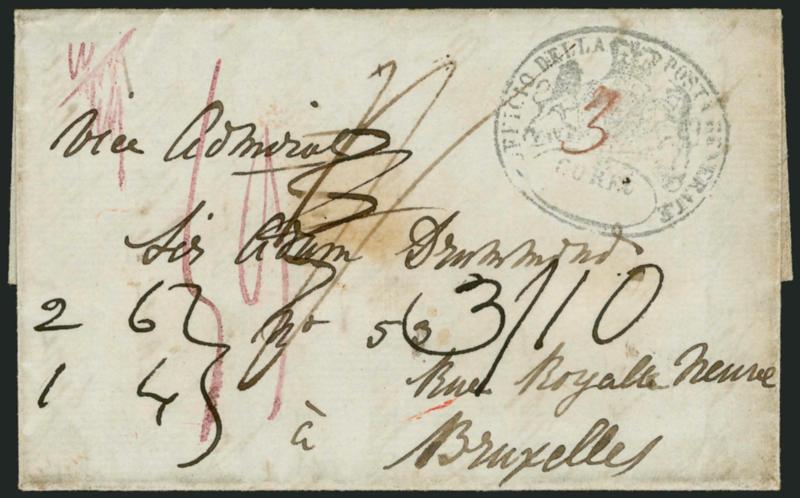 UFFICIO DELLA POSTA GENERALE
CORFU
3
Vice Admiral
Sir Adam Drummond
2 6
No 53
3/10
1 4
Rue Royalle Neuve
à
Bruxelles